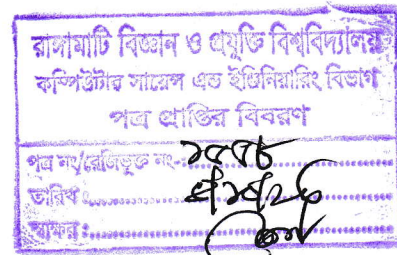 রাঙ্গামাটি বিজ্ঞান ও প্রযুক্তি বিশ্ববিদ্যালয়
কম্পিউটার সায়েন্স এন্ড ইঞ্জিনিয়ারিং বিভাগ
পত্র প্রাপ্তির বিবরণ
পত্র নং/রেজিভুক্ত নং- ১৫৭৮
তারিখ :
স্বাক্ষর :